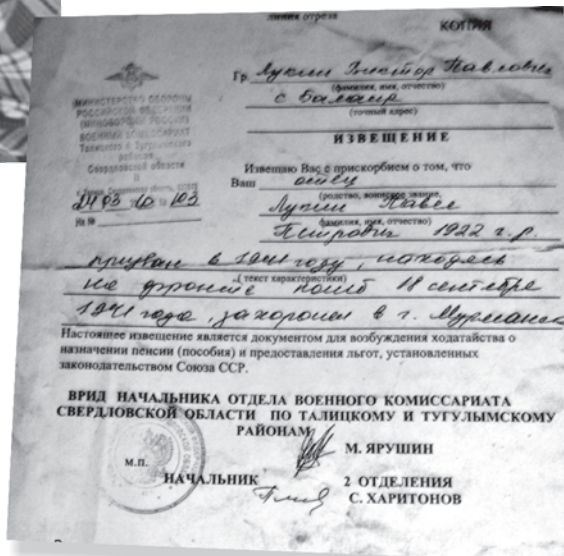 линия отреза
КОПИЯ
Гр. Лукин Виктор Павлович
(фамилия, имя, отчество)
с Балаир
(точный адрес)
МИНИСТЕРСТВО ОБОРОНЫ
РОССИЙСКОЙ ФЕДЕРАЦИИ
(МИНОБОРОНЫ РОССИИ)
ВОЕННЫЙ КОМИССАРИАТ
Талицкого и Тугулымского
районов
Свердловской области
24 03 10 № 103
На №
ИЗВЕЩЕНИЕ
Извещаю Вас с прискорбием о том, что
Ваш отец
(родство, воинское звание,
Лукин Павел
фамилия, имя, отчество)
Петрович 1922 г.р.
призван в 1941 году, находясь
( текст характеристики)
на фронте погиб 18 сентября
1941 года, захоронен в г. Мурманск
Настоящее извещение является документом для возбуждения ходатайства о
назначении пенсии (пособия) и предоставления льгот, установленных
законодательством Союза ССР.
ВРИД НАЧАЛЬНИКА ОТДЕЛА ВОЕННОГО КОМИССАРИАТА
СВЕРДЛОВСКОЙ ОБЛАСТИ ПО ТАЛИЦКОМУ И ТУГУЛЫМСКОМУ
РАЙОНАМ
М. ЯРУШИН
М.П.
НАЧАЛЬНИК 2 ОТДЕЛЕНИЯ
С. ХАРИТОНОВ